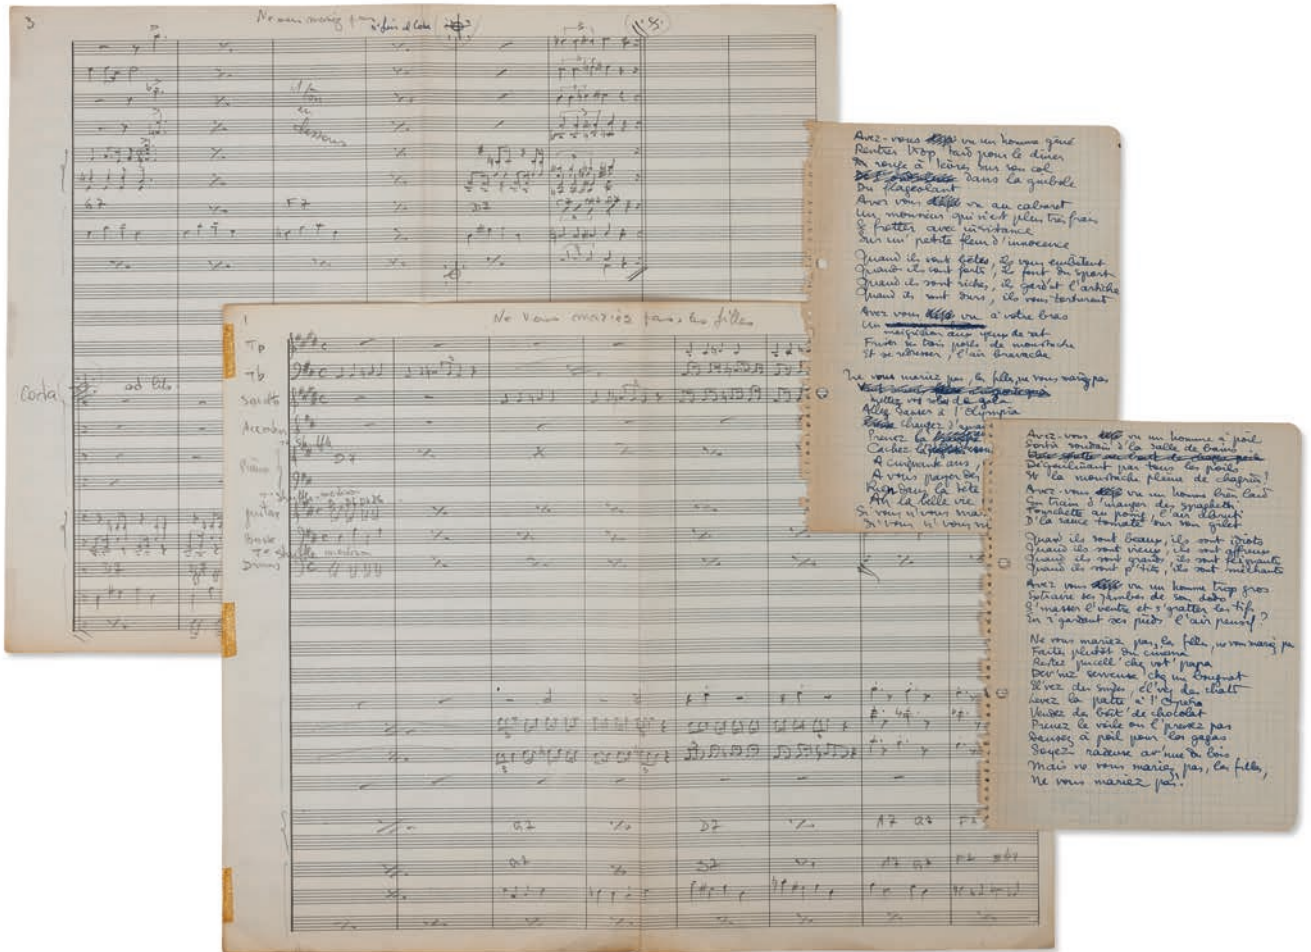 3
Ne vous mariez pas
𝄋
÷
1/2
ton
en
dessous
G7
F7
D7
Coda
ad lib.
1
Ne vous mariez pas, les filles
Tp
Tb
Accordéon
Piano
D7
guitar
Basse
Drums
G7
D7
A7 G7
G7
A7 G7
Avez-vous vu un homme gêné
Rentrer trop tard pour le dîner
Du rouge à lèvres sur son col
dans la guibole
Du flageolant
Avez vous vu au cabaret
Un monsieur qui n'est plus très frais
Se frotter avec insistance
Sur un' petite fleur d'innocence
Quand ils sont bêtes, ils vous embêtent
Quand ils sont forts, ils font du sport
Quand ils sont riches, ils gard'nt l'artiche
Quand ils sont durs, ils vous torturent
Avez vous vu à votre bras
Un
maigrichon aux yeux de rat
Friser ses trois poils de moustache
Et se redresser, l'air bravache
Ne vous mariez pas, les filles, ne vous mariez pas
Mettez vos robes de gala
Allez danser à l'Olympia
changez d'
Prenez la
Cachez
A cinquante ans,
A vous payer des
Rien dans la tête
Ah la belle vie
Si vous n'vous
Si vous n'vous m
Avez-vous vu un homme à poil
Sortir soudain d'la salle de bains
Dégoulinant par tous les poils
Et la moustache pleine de chagrin?
Avez-vous vu un homme bien laid
En train d'manger des spaghetti
Fourchette au poing, l'air abruti
D'la sauce tomate sur son gilet
Quand ils sont beaux, ils sont idiots
Quand ils sont vieux, ils sont affreux
Quand ils sont grands, ils sont feignants
Quand ils sont p'tits, ils sont méchants
Avez vous vu un homme trop gros
Extraire ses jambes de son dodo
S'masser l'ventre et s'gratter les tifs
En r'gardant ses pieds l'air pensif?
Ne vous mariez pas, les filles, ne vous mariez pas
Faites plutôt du cinéma
Restez pucell' chez vot' papa
Dev'nez serveuse chez un bougnat
El'vez des singes, él'vez des chats
Levez la patte à l'Opéra
Vendez des boît' de chocolat
Prenez le voile ou l'prenez pas
Dansez à poil pour les gagas
Soyez radeuse av'nue du bois
Mais ne vous mariez pas, les filles,
Ne vous mariez pas.